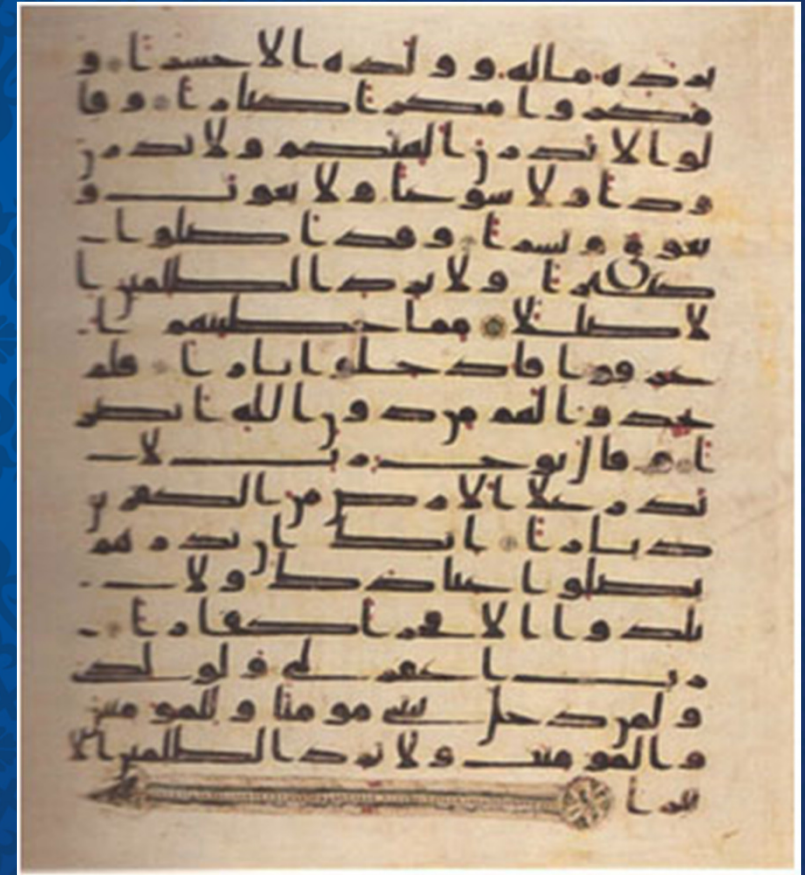 يزده ماله وولده الا خسرا و
مكروا مكرا كبارا وقا
لوا لا تذرن الهتكم ولا تذرن
ودا ولا سوعا ولا يغوث و
يعوق ونسرا وقد اضلوا
كثيرا ولا تزد الظلمين ا
لا ضللا مما خطيتهم ا
غرقوا فادخلوا نارا فلم
يجدوا لهم من دون الله انصا
را وقال نوح رب لا
تذر علا الارض من الكفرين
ديارا انك ان تذرهم
يضلوا عبادك ولا
يلدوا الا فجرا كفارا
رب اغفر لي ولولدي
ولمن دخل بيتي مومنا وللمومنين
والمومنت ولا تزد الظلمين الا
تبارا